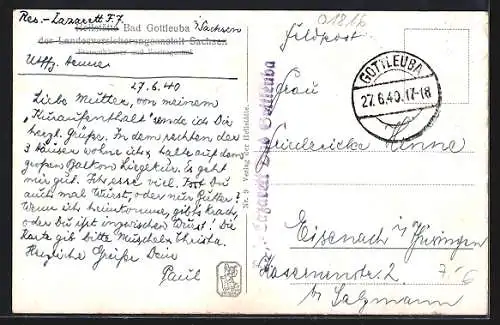 Res.-Lazarett F.7.
Heilstätte Bad Gottleuba i/Sachsen
der Landesversicherungsanstalt Sachsen
Uffz. Henne
27.6.40
Liebe Mutter, von meinem
"Kuraufenthalt" sende ich Dir
herzl. Grüße. In dem rechten der
3 Häuser wohne ich, halte auf dem
großen Balkon Liegekur. Es geht
mir gut. Ich esse viel. Hast Du
auch mal Wurst, oder nur Butter?
Wenn ich heimkomme, gibt's Krach,
oder Du ißt inzwischen Wurst! Die
Karte gib bitte Muschels Christa.
Herzliche Grüße Dein
Paul
Nr. 9 Verlag der Heilstätte.
Res.-Lazarett Bad Gottleuba
01816
Feldpost
GOTTLEUBA
27.6.40.17-18
Frau
Friedericke Henne
Eisenach i/Thüringen
2
bei Salzmann